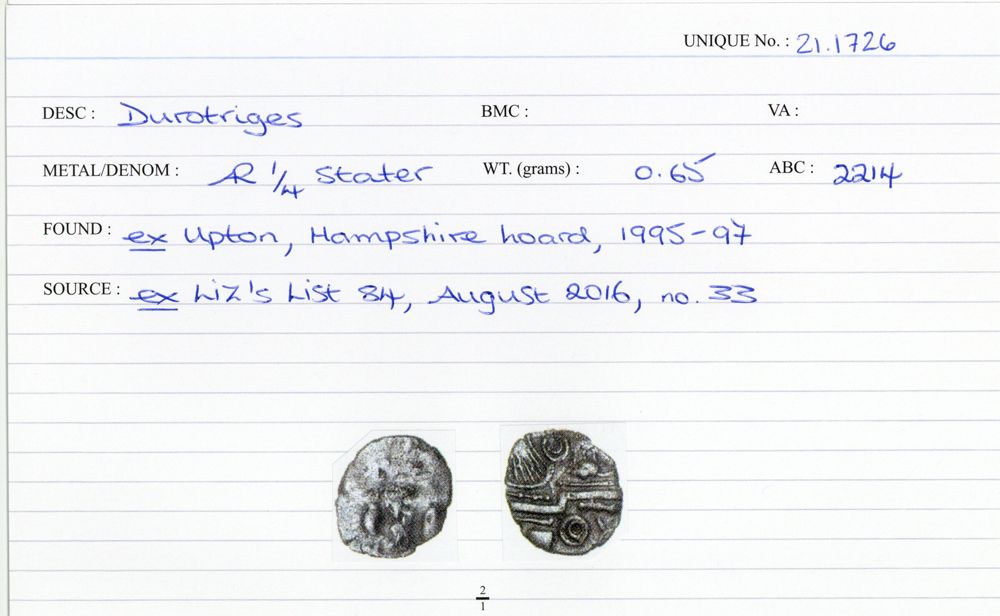 UNIQUE No. : 21.1726
DESC : Durotriges BMC : VA :
METAL/DENOM : AR 1/4 stater WT. (grams) : 0.65 ABC : 2214
FOUND : ex Upton, Hampshire hoard, 1995-97
SOURCE : ex Liz's List 84, August 2016, no. 33
2
1